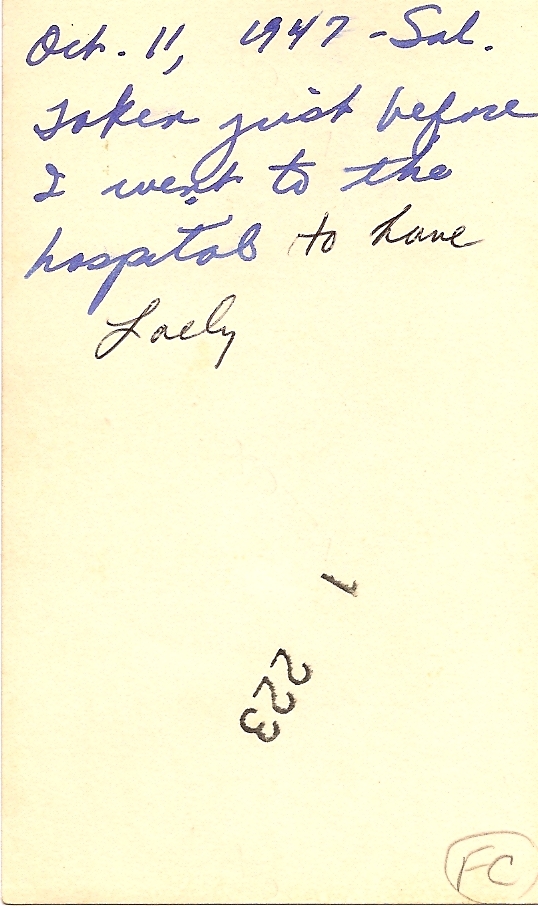 Oct. 11, 1947 - Sat.
Taken just before
I went to the
hospital to have
Laely
1
223
FC